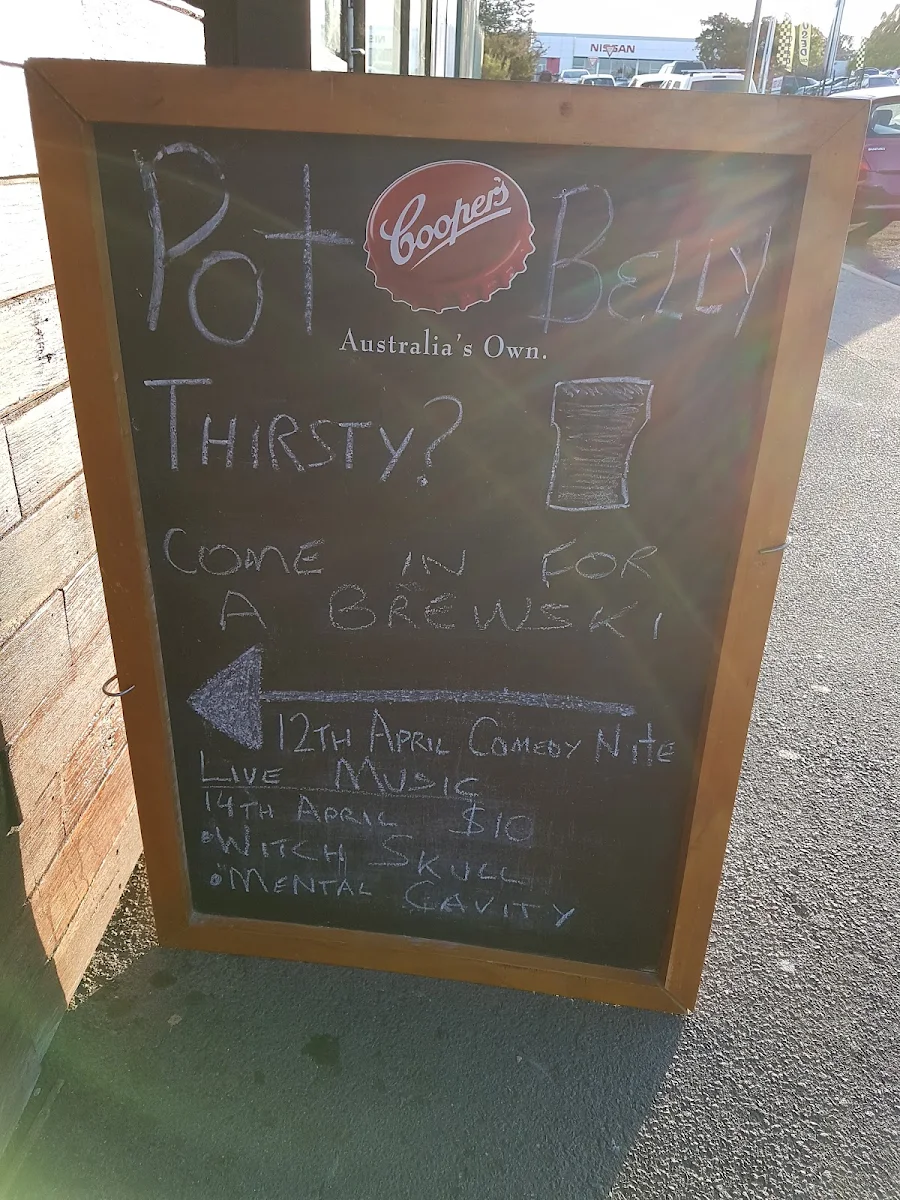 NISSAN
Pot Cooper's BELLY
Australia's Own.
THIRSTY?
COME IN FOR
A BREWSKI
12TH APRIL COMEDY NitE
LIVE MUSIC
14TH APRIL $10
•WITCH SKULL
•MENTAL CAVITY